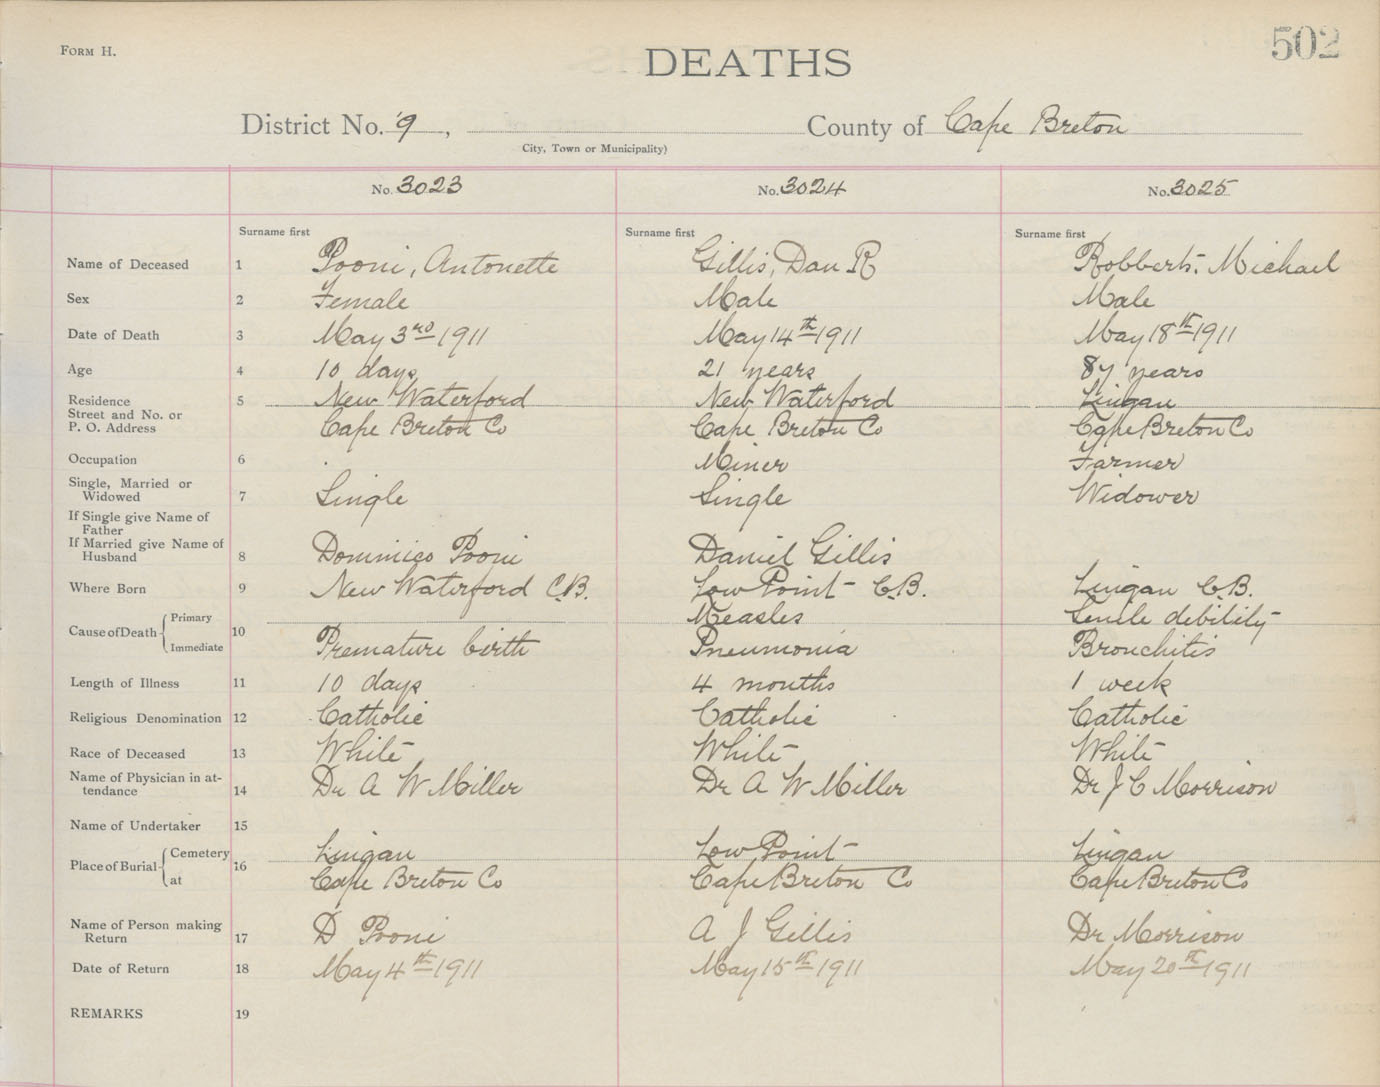 FORM H.
502
DEATHS
District No. 9, County of Cape Breton
City, Town or Municipality)
No. 3023 No. 3024 No. 3025
Surname first Surname first Surname first
Name of Deceased 1 Pooni, Antonette Gillis, Dan R Robberts. Michael
Sex 2 Female Male Male
Date of Death 3 May 3rd 1911 May 14th 1911 May 18th 1911
Age 4 10 days 21 years 87 years
Residence 5 New Waterford New Waterford Lingan
Street and No. or
P. O. Address Cape Breton Co Cape Breton Co Cape Breton Co
Occupation 6 Miner Farmer
Single, Married or
Widowed 7 Single Single Widower
If Single give Name of
Father
If Married give Name of
Husband 8 Dominico Pooni Daniel Gillis
Where Born 9 New Waterford C.B. Low Point C.B. Lingan C.B.
Primary Measles Senile debility
Cause of Death 10
Immediate Premature birth Pneumonia Bronchitis
Length of Illness 11 10 days 4 months 1 week
Religious Denomination 12 Catholic Catholic Catholic
Race of Deceased 13 White White White
Name of Physician in at-
tendance 14 Dr A W Miller Dr A W Miller Dr J C Morrison
Name of Undertaker 15
Cemetery Lingan Low Point Lingan
Place of Burial 16
at Cape Breton Co Cape Breton Co Cape Breton Co
Name of Person making
Return 17 D Pooni A J Gillis Dr Morrison
Date of Return 18 May 4th 1911 May 15th 1911 May 20th 1911
REMARKS 19